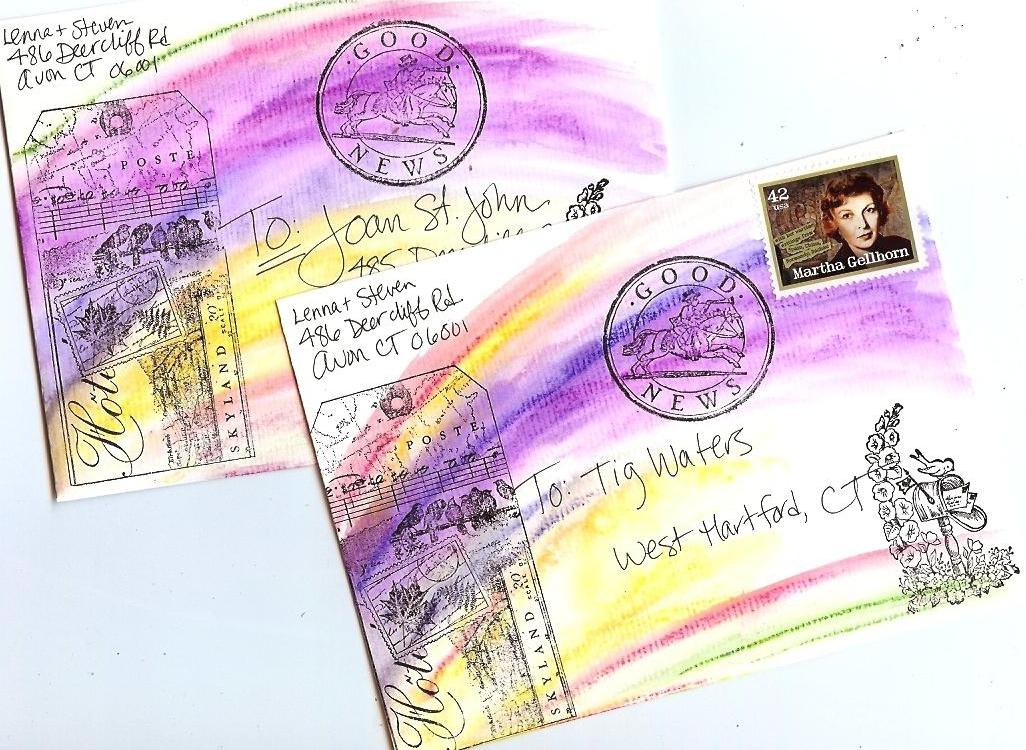 Lenna + Steven
486 Deercliff Rd
Avon CT 06001
GOOD
NEWS
POSTE
SKYLAND
Hôtel
To: Joan St. John
485
Lenna + Steven
486 Deercliff Rd.
Avon CT 06001
GOOD
NEWS
42
usa
Martha Gellhorn
POSTE
SKYLAND
To: Tig Waters
West Hartford, CT